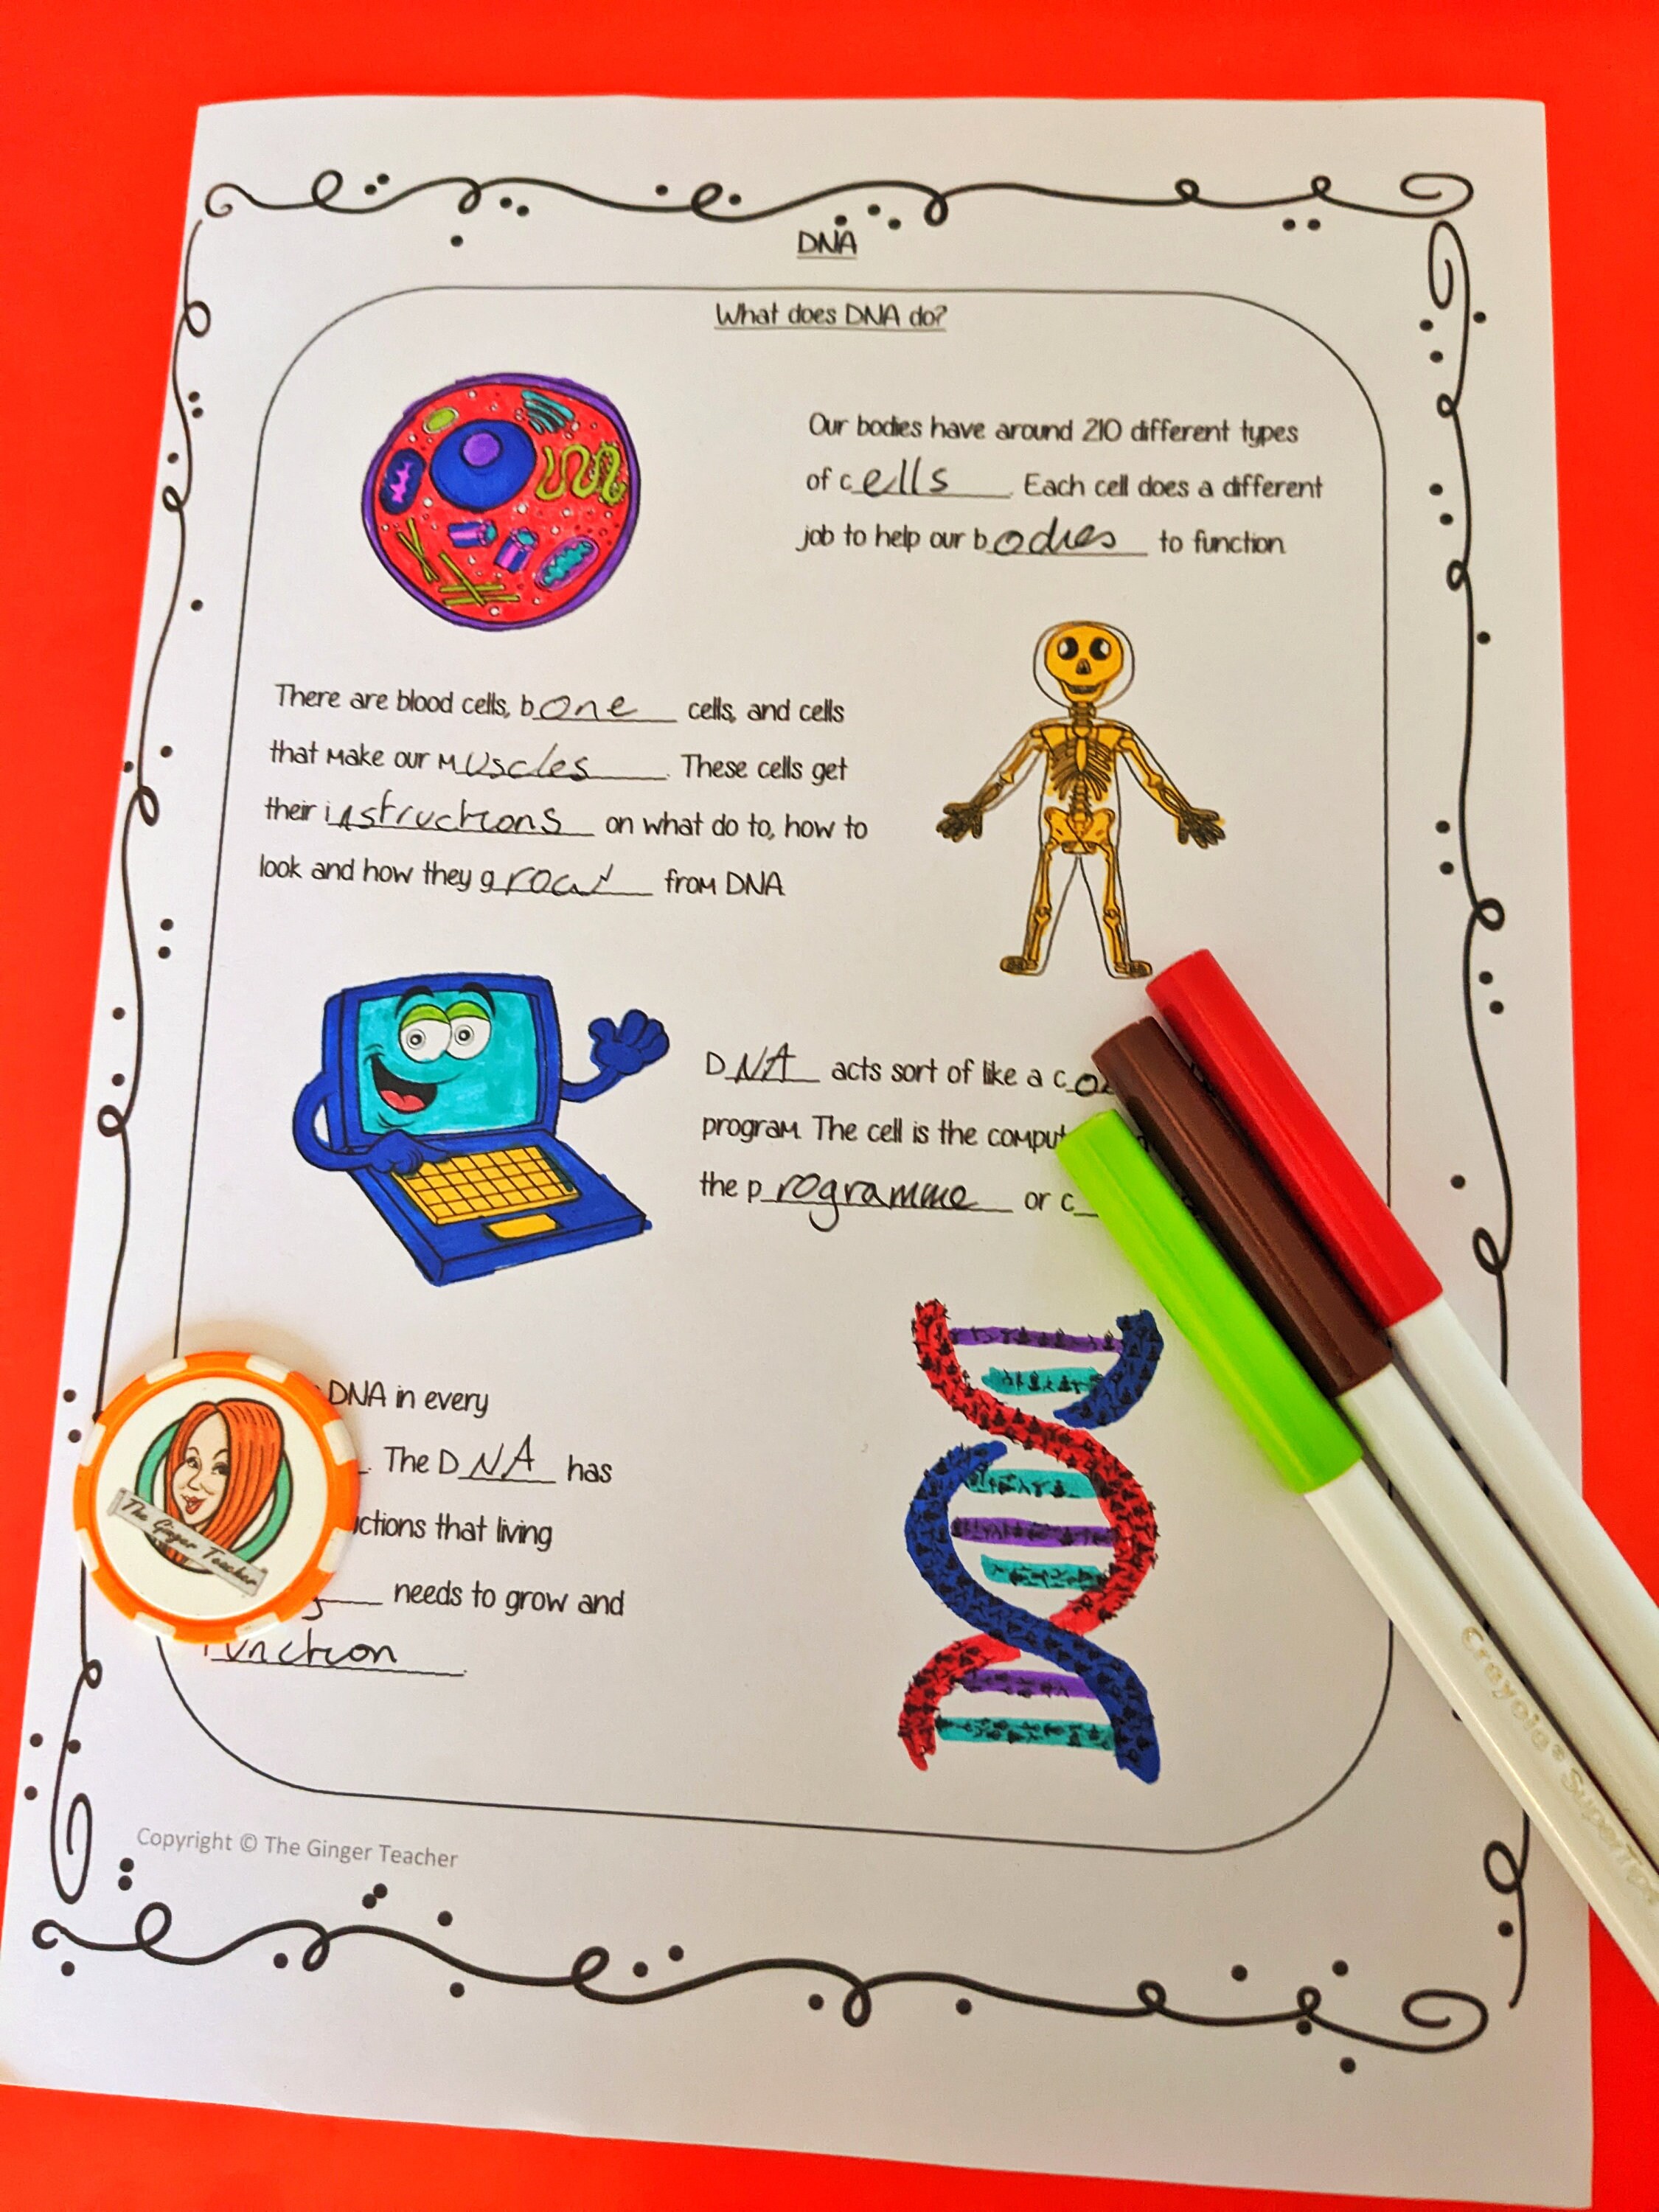 DNA
What does DNA do?
Our bodies have around 210 different types
of cells. Each cell does a different
job to help our bodies to function.
There are blood cells, bone cells, and cells
that make our muscles. These cells get
their instructions on what do to, how to
look and how they grow from DNA.
DNA acts sort of like a
program. The cell is the
the programme or
DNA in every
The DNA has
that living
needs to grow and
function
The Ginger Teacher
Crayola® SuperTips
Copyright © The Ginger Teacher